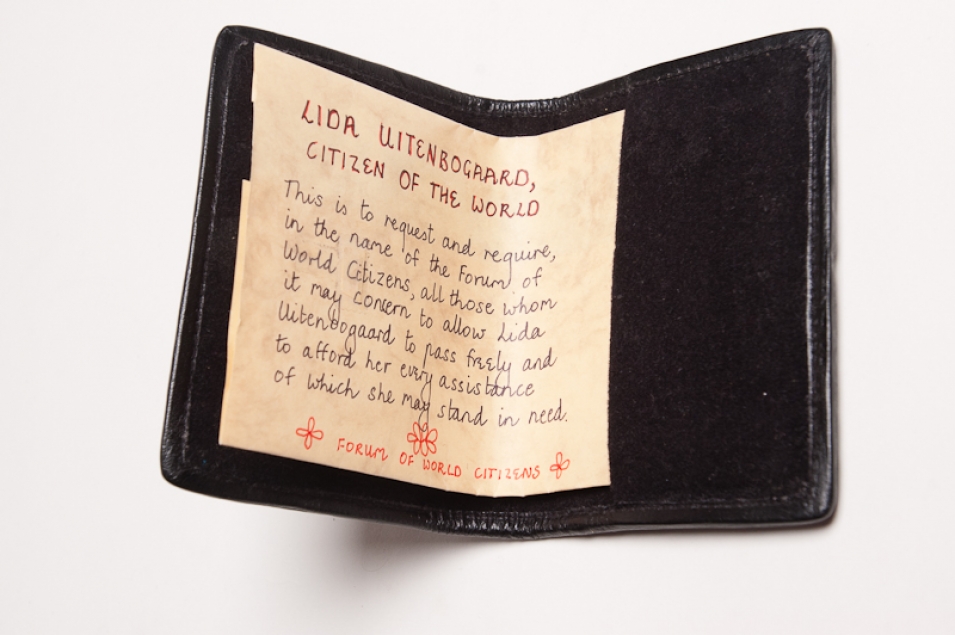 LIDA UITENBOGAARD,
CITIZEN OF THE WORLD
This is to request and require,
in the name of the Forum of
World Citizens, all those whom
it may concern to allow Lida
Uitenbogaard to pass freely and
to afford her every assistance
of which she may stand in need.
FORUM OF WORLD CITIZENS